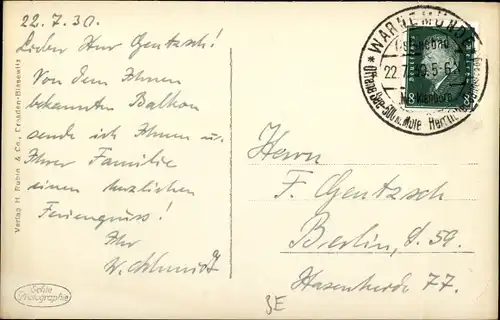 22.7.30.
Lieber Herr Gentzsch!
Von dem Ihnen
bekannten Balkon
sende ich Ihnen u.
Ihrer Familie
einen herzlichen
Feriengruss!
Ihr
W. Schmidt
Verlag H. Rubin & Co., Dresden-Blasewitz
Echte
Photographie
WARNEMÜNDE
Ostseebad
22.7.30.5-6
Offene See-500 m. Mole Herrl.
8
Herrn
F. Gentzsch
Berlin, S. 59.
Hasenheide 77.